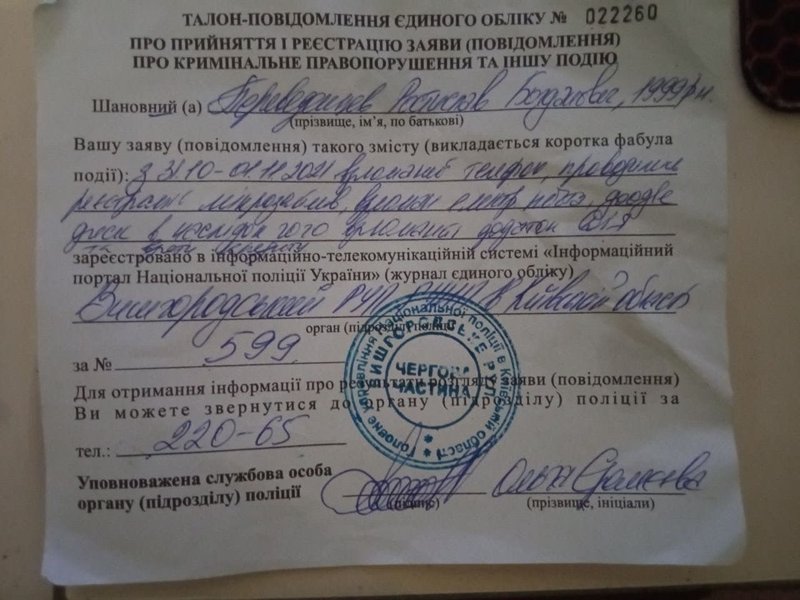 ТАЛОН-ПОВІДОМЛЕННЯ ЄДИНОГО ОБЛІКУ № 022260
ПРО ПРИЙНЯТТЯ І РЕЄСТРАЦІЮ ЗАЯВИ (ПОВІДОМЛЕННЯ)
ПРО КРИМІНАЛЬНЕ ПРАВОПОРУШЕННЯ ТА ІНШУ ПОДІЮ
Шановний (а) Богданович, 1999 р.н.
(прізвище, ім’я, по батькові)
Вашу заяву (повідомлення) такого змісту (викладається коротка фабула
події): з 31.10-01.11.2021 телефон,
google
диск в наслідок чого додаток
та
зареєстровано в інформаційно-телекомунікаційній системі «Інформаційний
портал Національної поліції України» (журнал єдиного обліку)
Вишгородський РУП ГУНП в Київській області
орган (підрозділ) поліції
за № 599
Для отримання інформації про результати розгляду заяви (повідомлення)
Ви можете звернутися до органу (підрозділу) поліції за
тел.: 220-65
Уповноважена службова особа
органу (підрозділу) поліції
Ольга
(підпис) (прізвище, ініціали)
Головне управління Національної поліції в Київській області
ВИШГОРОДСЬКЕ
ЧЕРГОВА
ЧАСТИНА